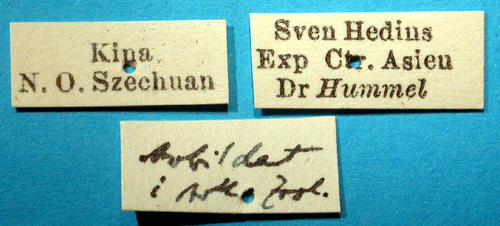 Kina
N. O. Szechuan
Sven Hedins
Exp Ctr. Asien
Dr Hummel
Avbildat
i Ark. Zool.